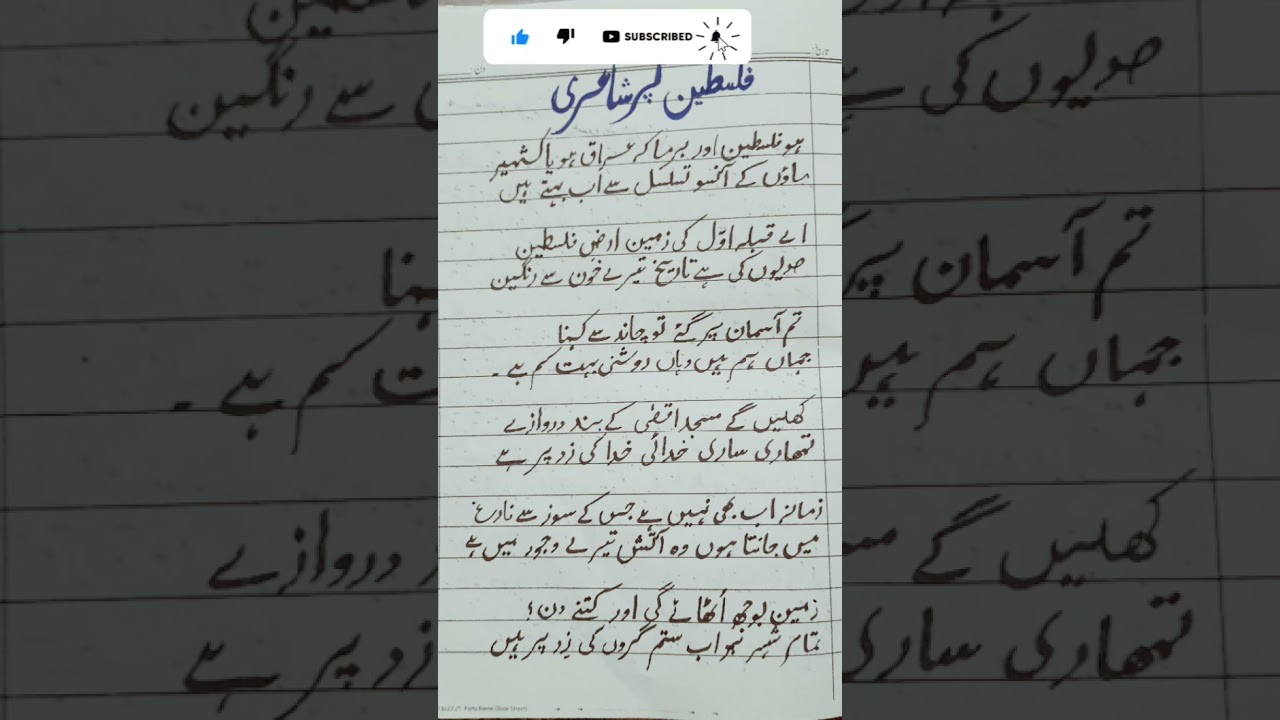 SUBSCRIBED
فلسطین پر شاعری
ہو فلسطین اور برما کہ عراق ہو یا کشمیر
ماؤں کے آنسو تسلسل سے اب بہتے ہیں
اے قبلہ اوّل کی زمین ارضِ فلسطین
صدیوں کی ہے تاریخ تیرے خون سے رنگین
تم آسمان پر گئے تو چاند سے کہنا
جہاں ہم ہیں وہاں روشنی بہت کم ہے ۔
کھلیں گے مسجد اقصٰی کے بند دروازے
تمھاری ساری خدائی خدا کی زد پر ہے
زمانہ اب بھی نہیں ہے جس کے سوز سے فارغ
میں جانتا ہوں وہ آتش تیرے وجود میں ہے
زمین بوجھ اُٹھائے گی اور کتنے دن؟
تمام شہر اب ستم گروں کی زد پر ہیں